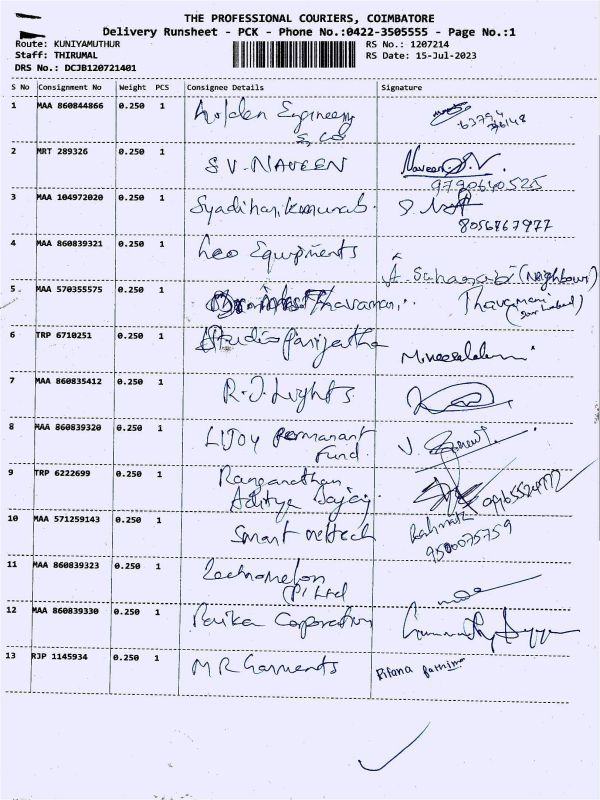 THE PROFESSIONAL COURIERS, COIMBATORE
Delivery Runsheet - PCK - Phone No.:0422-3505555 - Page No.:1
Route: KUNIYAMUTHUR RS No.: 1207214
Staff: THIRUMAL RS Date: 15-Jul-2023
DRS No.: DCJB120721401
S No Consignment No Weight PCS Consignee Details Signature
1 MAA 860844866 0.250 1 Golden Engineery
& Co
2 MRT 289326 0.250 1 S V. NAVEEN Naveen.S.V.
9790640525
3 MAA 104972020 0.250 1 Syadihari kumurab.
8056767977
4 MAA 860839321 0.250 1 Leo Equipments
(Neighbour)
5 MAA 570355575 0.250 1 Thavamani. Thavamani
6 TRP 6710251 0.250 1 Studio Parijatha
7 MAA 860835412 0.250 1 R.J. Lights
8 MAA 860839320 0.250 1 LIJOY Permanant
Fund.
9 TRP 6222699 0.250 1 Ranganathan
Aditya
10 MAA 571259143 0.250 1 Smart meltech
9500075759
11 MAA 860839323 0.250 1
(P) Ltd
12 MAA 860839330 0.250 1 Corporation
13 RJP 1145934 0.250 1 M R Garments Rifana Fathima